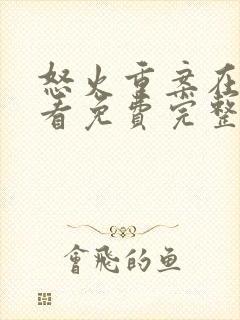 怒火重案在
看免费完整
會飛的鱼